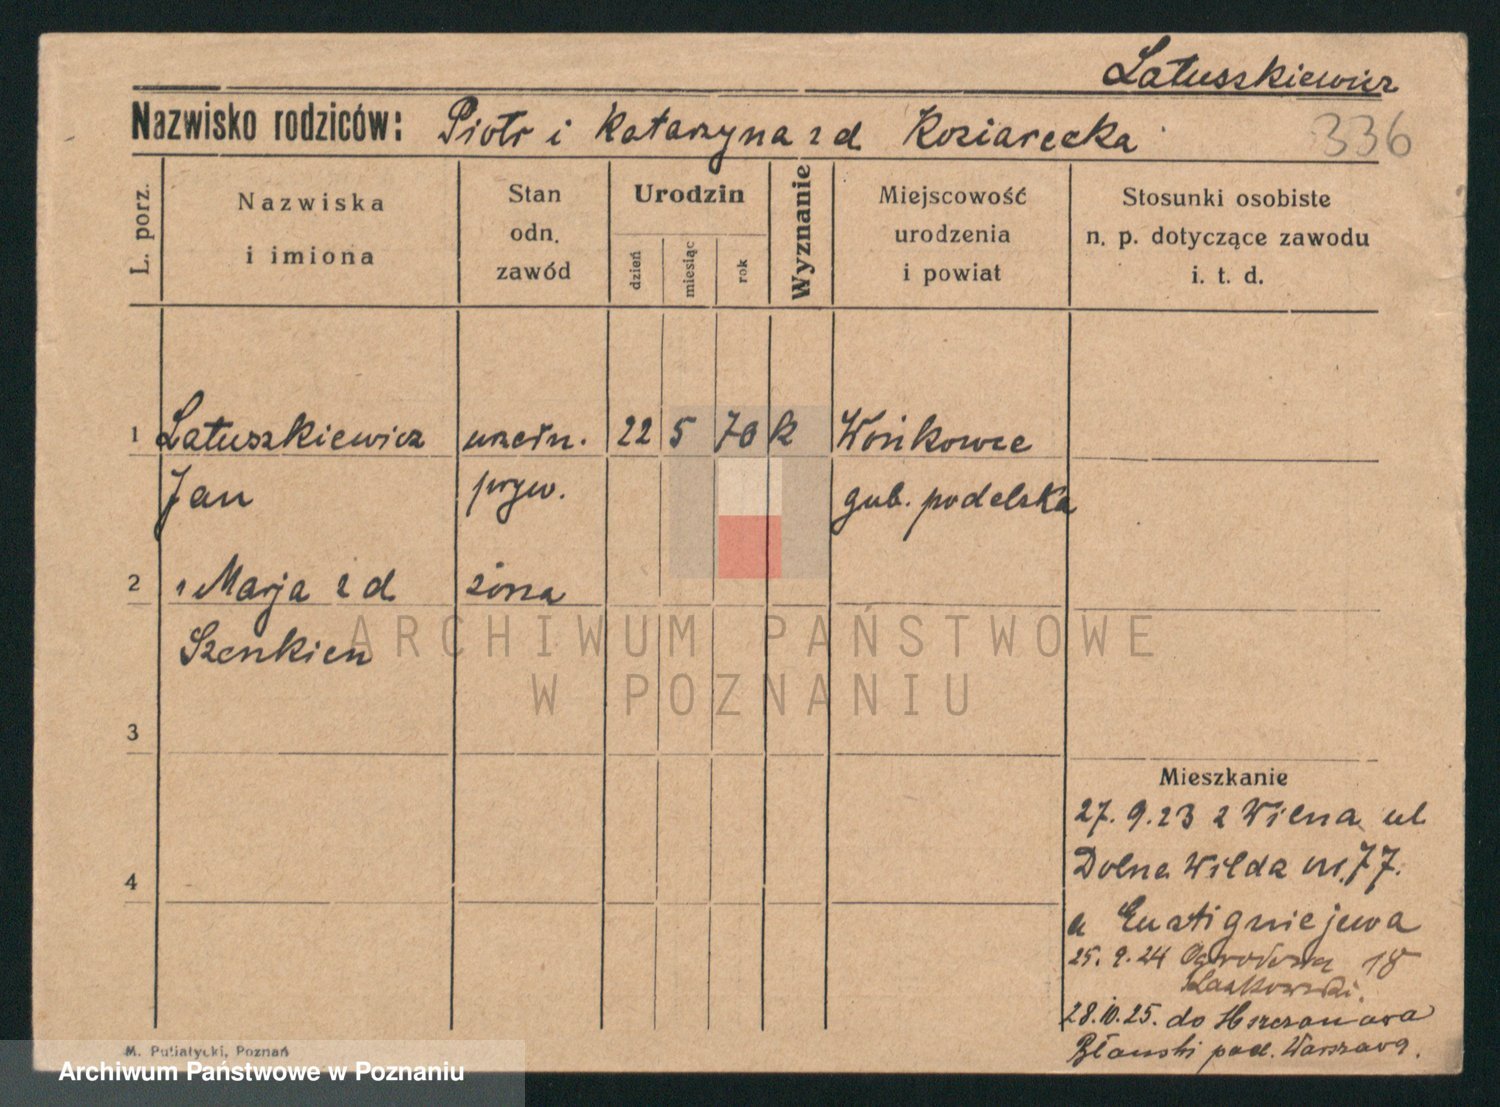 Latuszkiewicz
Nazwisko rodziców: Piotr i Katarzyna z d Koziarecka
336
L. porz.
Nazwiska
i imiona
Stan
odn.
zawód
Urodzin
dzień
miesiąc
rok
Wyznanie
Miejscowość
urodzenia
i powiat
Stosunki osobiste
n. p. dotyczące zawodu
i. t. d.
1 Latuszkiewicz urzędn. 22 5 70 k Wońkowce
Jan pryw. gub. podolska
2 " Marja z d żona
Szenkien
ARCHIWUM PAŃSTWOWE
W POZNANIU
3
Mieszkanie
27. 9. 23 z Wilna ul
Dolna Wilda nr. 77.
4
u
25. 9. 24 Ogrodowa 18
Laskowski.
28. 10. 25. do
Błonski pod. Warszawą.
M. Putiatycki, Poznań
Archiwum Państwowe w Poznaniu